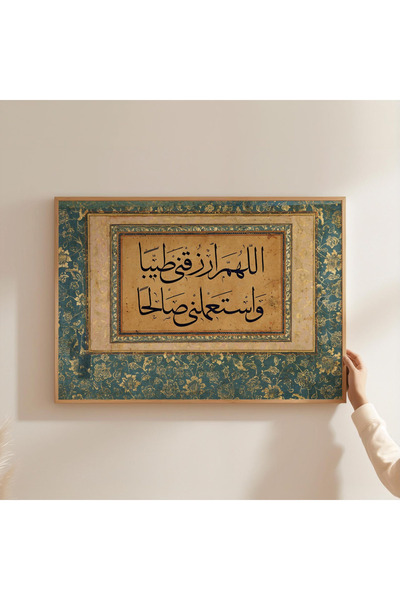 اللهم ارزقني طيبا
واستعملني صالحا